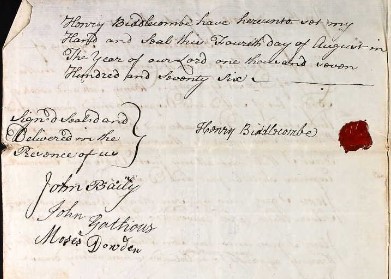 Henry Bidlecombe have hereunto set my
Hand and Seal this Fourth day of August in
The Year of our Lord one thousand seven
Hundred and seventy six
Signd Sealed and
Delivered in the
Presence of us
Henry Bidlecombe
John Baily
John
Moses Dowden